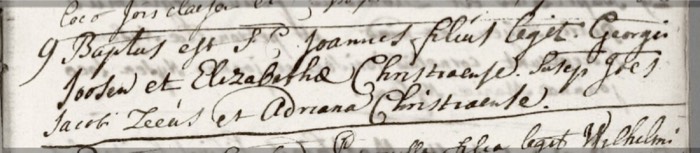 Loco
9 Baptus est Joannes filius legit. Georgii
Joosen et Elizabethæ Christiaense. Susep Joes
Jacobi Zeeüs et Adriana Christiaense.
filia legit Wilhelmi